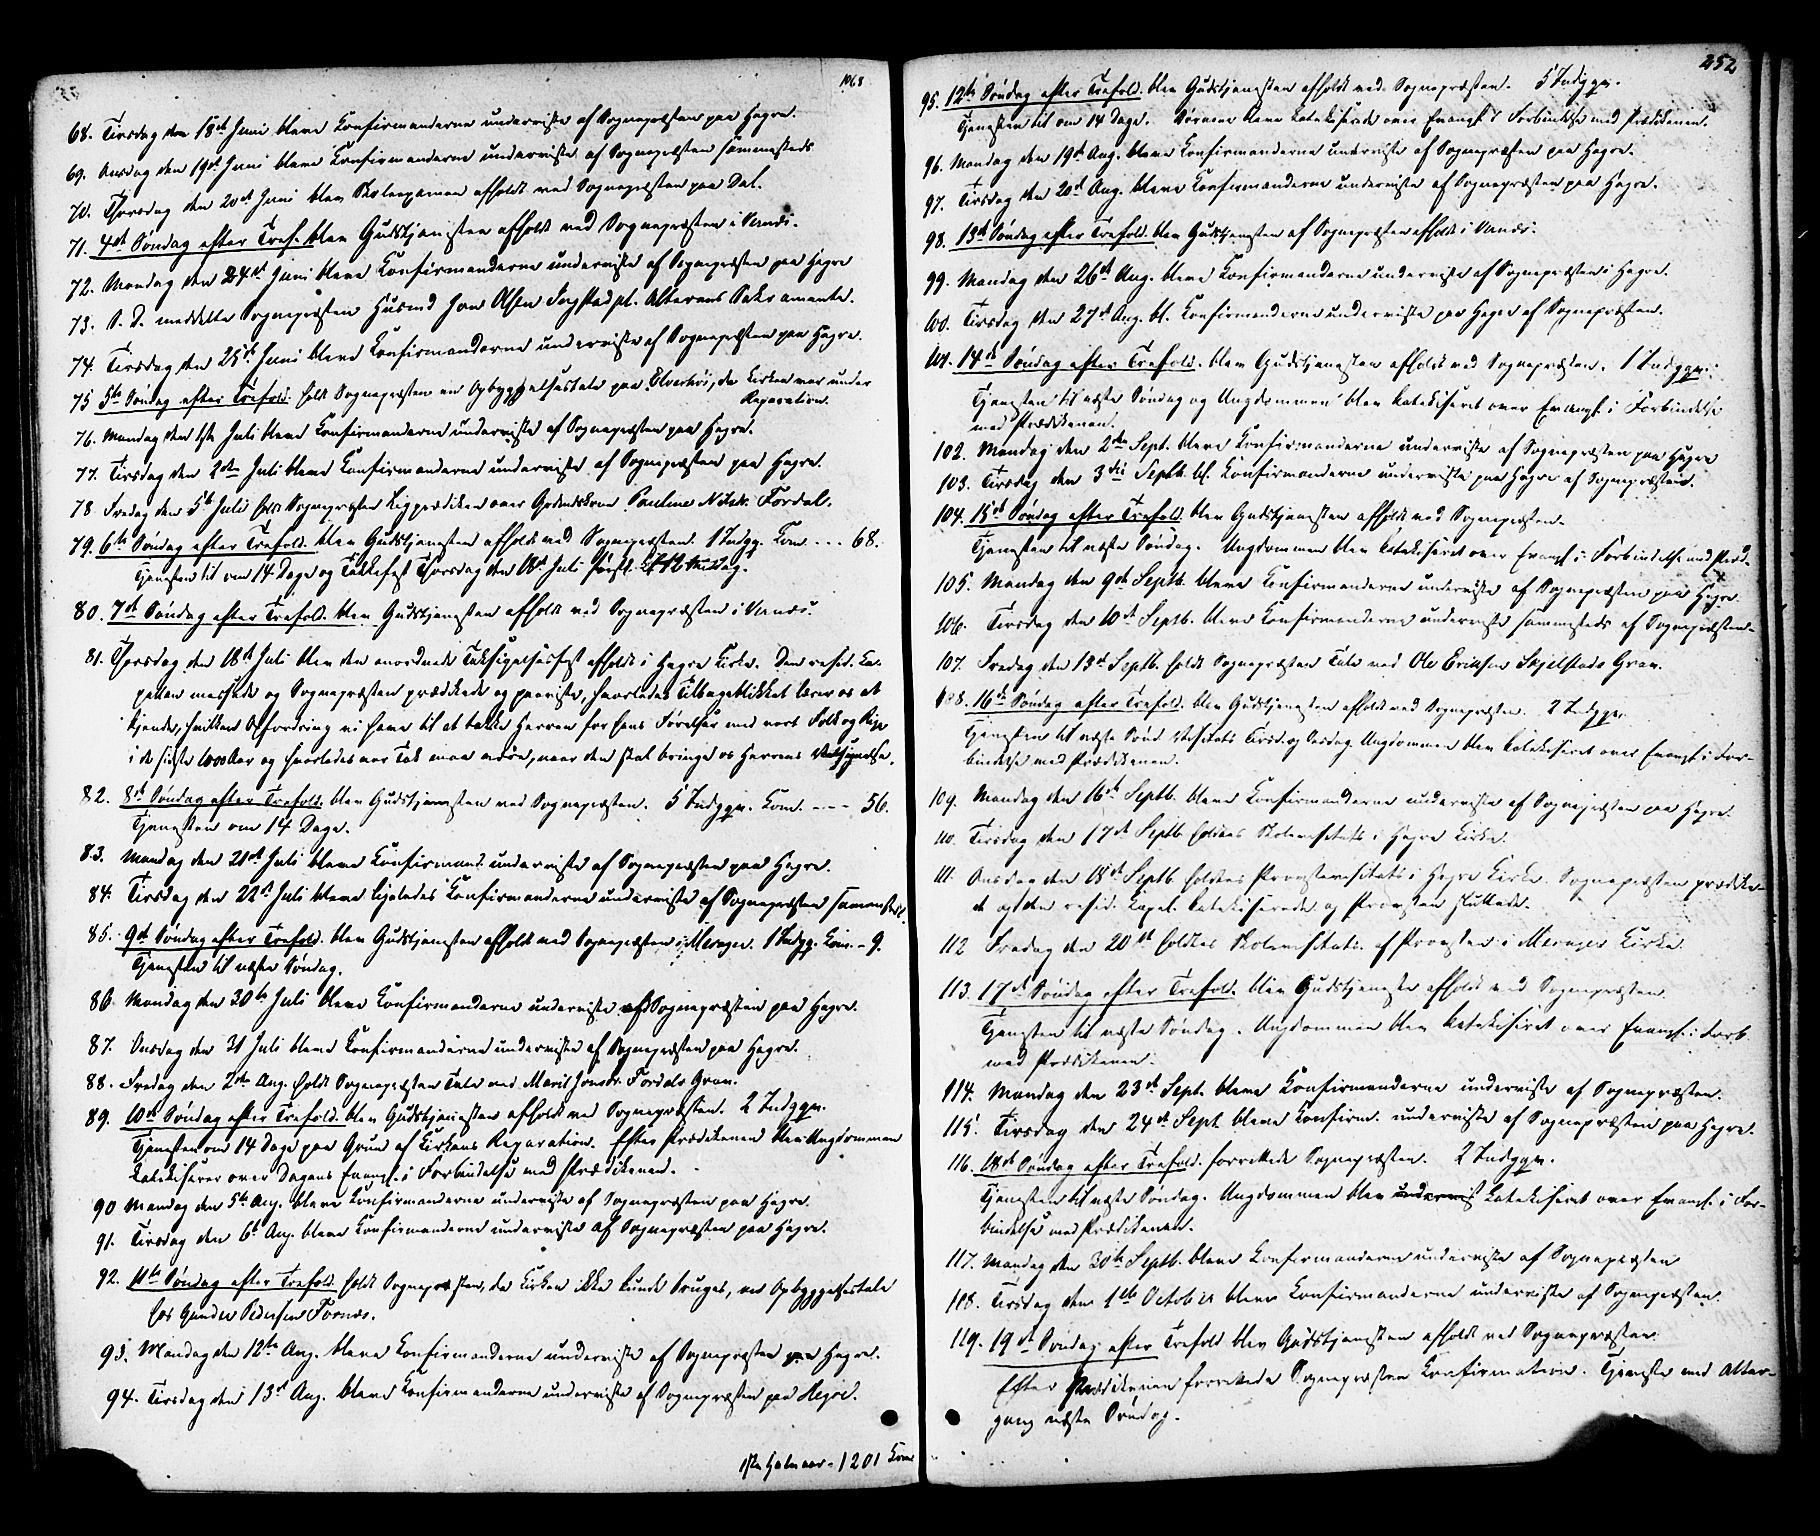 1068
68. Tirsdag den 18de Juni bleve Konfirmanderne underviste af Sognepræsten paa Hegre.
69. Onsdag den 19de Juni bleve Konfirmanderne underviste af Sognepræsten sammesteds
70. Thorsdag den 20de Juni blev Skoleexamen afholdt ved Sognepræsten paa Dal.
71. 4de Søndag efter Tref. blev Gudstjenesten afholdt ved Sognepræsten i Værnes.
72. Mandag den 24de Juni bleve Konfirmanderne underviste af Sognepræsten paa Hegre
73. S. D. meddelte Sognepræsten Husmd Jon Olsen Alterens Sakramente.
74. Tirsdag den 25de Juni bleve Konfirmanderne underviste af Sognepræsten paa Hegre.
75 5te Søndag efter Trefold. holdt Sognepræsten en Opbyggelsestale paa Elverhøi, da Kirken var under
Reparation.
76. Mandag den 1ste Juli bleve Konfirmanderne underviste af Sognepræsten paa Hegre.
77. Tirsdag den 2den Juli bleve Konfirmanderne underviste af Sognepræsten paa Hegre.
78. Fredag den 5te Juli holdt Sognepræsten Ligprædiken over Pauline Fordal.
79. 6te Søndag efter Trefold. blev Gudstjenesten afholdt ved Sognepræsten. 1 Indgg. Kom. --- 68.
Tjenesten til om 14 Dage og Takkefest Thorsdag den 18de Juli Kl 12 Middag.
80. 7de Søndag efter Trefold. blev Gudstjenesten afholdt ved Sognepræsten i Værnes.
81. Thorsdag den 18de Juli blev den anordnede Taksigelsesfest afholdt i Hegre Kirke. Den resid. Ca-
pellan messede og Sognepræsten prædikede og paaviste, hvorledes Tilbageblikket lærer os at
kjende, hvilken Opfordring vi have til at takke Herren for hans Førelser med vort Folk og Rige
i de sidste 1000 Aar og hvorledes vor Tak maa være, naar den skal bringe os Herrens Velsignelse.
82. 8de Søndag efter Trefold. blev Gudstjenesten ved Sognepræsten. 5 Indggr. Kom. --- 56.
Tjenesten om 14 Dage.
83. Mandag den 21de Juli bleve Konfirmand. underviste af Sognepræsten paa Hegre.
84. Tirsdag den 22de Juli bleve ligeledes Konfirmanderne underviste af Sognepræsten sammesteds.
85. 9de Søndag efter Trefold. blev Gudstjenesten afholdt ved Sognepræsten i Merager. 1 Indgg. Kom. - 9.
Tjenesten til næste Søndag.
86. Mandag den 30te Juli bleve Konfirmanderne underviste af Sognepræsten paa Hegre.
87. Onsdag den 31 Juli bleve Konfirmanderne underviste af Sognepræsten paa Hegre.
88. Fredag den 2den Aug. holdt Sognepræsten Tale ved Marit Jonsdr. Fordals Grav.
89. 10de Søndag efter Trefold. blev Gudstjenesten afholdt ved Sognepræsten. 2 Indggr.
Tjenesten om 14 Dage paa Grund af Kirkens Reparation. Efter Prædikenen blev Ungdommen
katekiseret over Dagens Evangl. i Forbindelse med Prædikenen.
90 Mandag den 5te Aug. bleve Konfirmanderne underviste af Sognepræsten paa Hegre.
91. Tirsdag den 6te Aug. bleve Konfirmanderne underviste af Sognepræsten paa Hegre.
92. 11te Søndag efter Trefold. holdt Sognepræsten, da Kirken ikke kunde bruges, en Opbyggelsestale
hos Gunder Pedersen Fornes.
93. Mandag den 12te Aug. bleve Konfirmanderne underviste af Sognepræsten paa Hegre.
94. Tirsdag den 13de Aug. bleve Konfirmanderne underviste af Sognepræsten paa Hegre.
1ste Halvaar - 1201 Kom
252
95. 12te Søndag efter Trefold. blev Gudstjenesten afholdt ved Sognepræsten. 5 Indggr.
Tjenesten til om 14 Dage. Børnene bleve katekiserede over Evangl. i Forbindelse med Prædikenen.
96. Mandag den 19de Aug. bleve Konfirmanderne underviste af Sognepræsten paa Hegre.
97. Tirsdag den 20de Aug. bleve Konfirmanderne underviste af Sognepræsten paa Hegre.
98. 13de Søndag efter Trefold. blev Gudstjenesten af Sognepræsten afholdt i Værnes.
99. Mandag den 26de Aug. bleve Konfirmanderne underviste af Sognepræsten i Hegre.
100. Tirsdag den 27de Aug. bl. Konfirmanderne underviste paa Hegre af Sognepræsten.
101. 14de Søndag efter Trefold. blev Gudstjenesten afholdt ved Sognepræsten. 1 Indggr.
Tjenesten til næste Søndag og Ungdommen blev katekiseret over Evangl. i Forbindelse
med Prædikenen.
102. Mandag den 2den Sept. bleve Konfirmanderne underviste af Sognepræsten paa Hegre
103. Tirsdag den 3die Septb. bl. Konfirmanderne underviste paa Hegre af Sognepræsten.
104. 15de Søndag efter Trefold. blev Gudstjenesten afholdt ved Sognepræsten.
Tjenesten til næste Søndag. Ungdommen blev katekiseret over Evangl. i Forbindelse med Præd.
105. Mandag den 9de Septb. bleve Konfirmanderne underviste af Sognepræsten paa Hegre.
106. Tirsdag den 10de Septb. bleve Konfirmanderne underviste sammesteds af Sognepræsten.
107. Fredag den 13de Septb. holdt Sognepræsten Tale ved Ole Eriksen Skjelstads Grav.
108. 16de Søndag efter Trefold. blev Gudstjenesten afholdt ved Sognepræsten. 2 Indggr.
Tjenesten til næste Sønd. Visitats Tirsd. og Onsdag. Ungdommen blev katekiseret over Evangl. i For-
bindelse med Prædikenen.
109. Mandag den 16de Septb. bleve Konfirmanderne underviste af Sognepræsten paa Hegre.
110. Tirsdag den 17de Septb. holdtes Skolevisitats i Hegre Kirke.
111. Onsdag den 18de Septb. holdtes Provstevisitats i Hegre Kirke. Sognepræsten prædike-
de og den resid. Kapel. katekiserede og Provsten sluttede.
112 Fredag den 20de holdtes Skolevisitats af Provsten i Merager Kirke.
113. 17de Søndag efter Trefold. blev Gudstjeneste afholdt ved Sognepræsten.
Tjenesten til næste Søndag. Ungdommen blev katekiseret over Evangl. i Forb.
med Prædikenen.
114. Mandag den 23de Sept. bleve Konfirmanderne underviste af Sognepræsten.
115. Tirsdag den 24de Sept. bleve Konfirm. underviste af Sognepræsten paa Hegre.
116. 18de Søndag efter Trefold. forrettede Sognepræsten. 2 Indggr.
Tjenesten til næste Søndag. Ungdommen blev undervist katekiseret over Evangl. i For-
bindelse med Prædikenen.
117. Mandag den 30te Septb. bleve Konfirmanderne underviste af Sognepræsten
118. Tirsdag den 1ste October bleve Konfirmanderne underviste af Sognepræsten.
119. 19de Søndag efter Trefold blev Gudstjenesten afholdt ved Sognepræsten.
Efter Prædikenen forrettede Sognepræsten Konfirmation. Tjeneste med Alter-
gang næste Søndag.